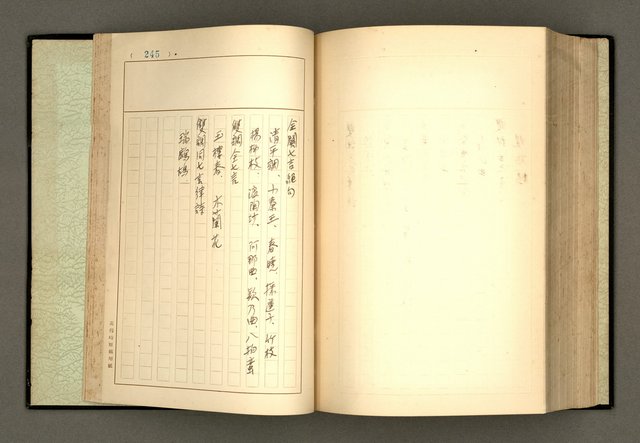 ( 245 )
全闋七言絕句
清平調、小秦王、春曉、採蓮子、竹枝
楊柳枝、浪淘沙、阿那曲、欸乃曲、八拍蠻
雙調全七言
玉樓春、木蘭花
雙調同七言律詩
瑞鷓鴣